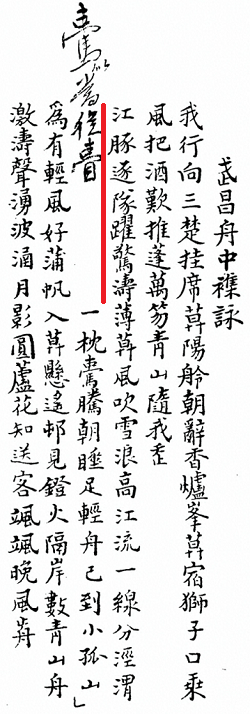 武昌舟中襍詠
我行向三楚挂席莫陽舲朝辭香爐峯莫宿獅子口乘
風把酒歎推蓬萬笏青山隨我走
江豚逐隊躍驚濤薄莫風吹雪浪高江流一線分涇渭
一枕騰朝睡足輕舟已到小孤山」
似當從瞢
為有輕風好蒲帆入莫懸遙邨見鐙火隔岸數青山舟
激濤聲湧波涵月影圓蘆花知送客颯颯晚風歬